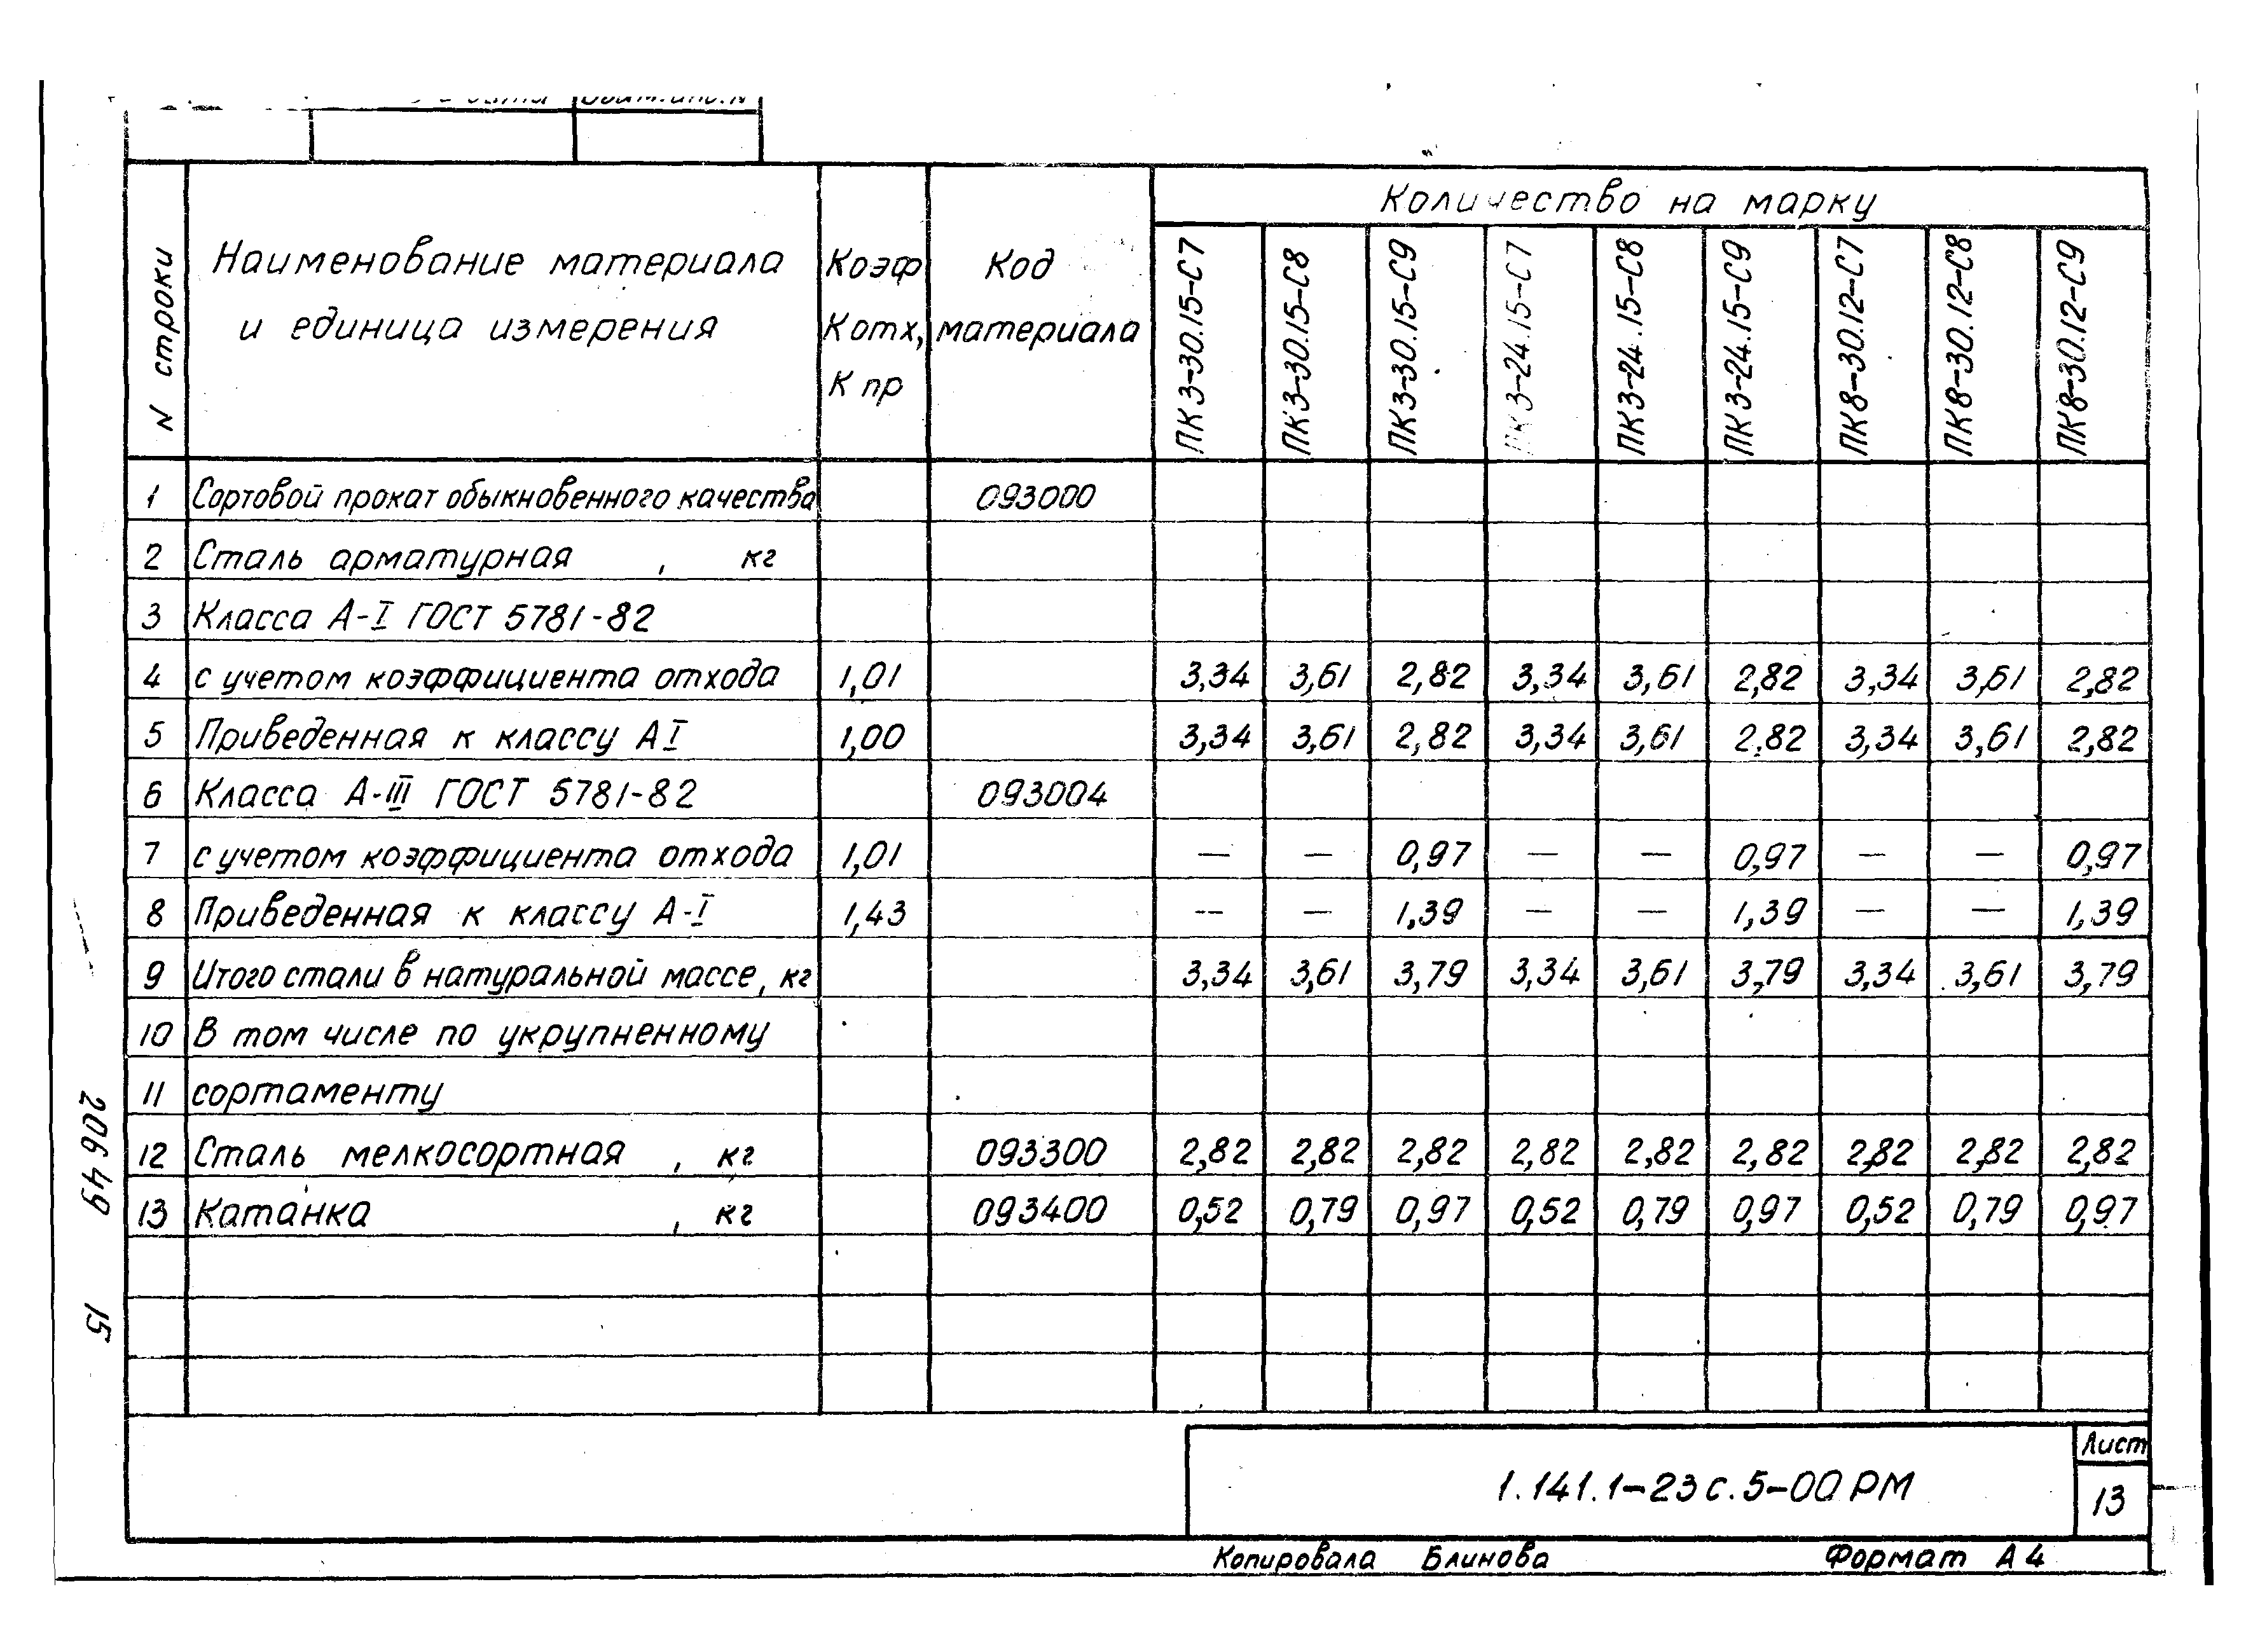 Количество на марку
N строки
Наименование материала
и единица измерения
Коэф
Котх,
К пр
Код
материала
ПК3-30.15-С7
ПК3-30.15-С8
ПК3-30.15-С9
ПК3-24.15-С7
ПК3-24.15-С8
ПК3-24.15-С9
ПК8-30.12-С7
ПК8-30.12-С8
ПК8-30.12-С9
1 Сортовой прокат обыкновенного качества 093000
2 Сталь арматурная , кг
3 Класса А-I ГОСТ 5781-82
4 с учетом коэффициента отхода 1,01 3,34 3,61 2,82 3,34 3,61 2,82 3,34 3,61 2,82
5 Приведенная к классу АI 1,00 3,34 3,61 2,82 3,34 3,61 2,82 3,34 3,61 2,82
6 Класса А-III ГОСТ 5781-82 093004
7 с учетом коэффициента отхода 1,01 — — 0,97 — — 0,97 — — 0,97
8 Приведенная к классу А-I 1,43 — — 1,39 — — 1,39 — — 1,39
9 Итого стали в натуральной массе, кг 3,34 3,61 3,79 3,34 3,61 3,79 3,34 3,61 3,79
10 В том числе по укрупненному
11 сортаменту
12 Сталь мелкосортная , кг 093300 2,82 2,82 2,82 2,82 2,82 2,82 2,82 2,82 2,82
13 Катанка , кг 093400 0,52 0,79 0,97 0,52 0,79 0,97 0,52 0,79 0,97
20649 15
1.141.1-23с.5-00РМ
Лист
13
Копировала Блинова Формат А4